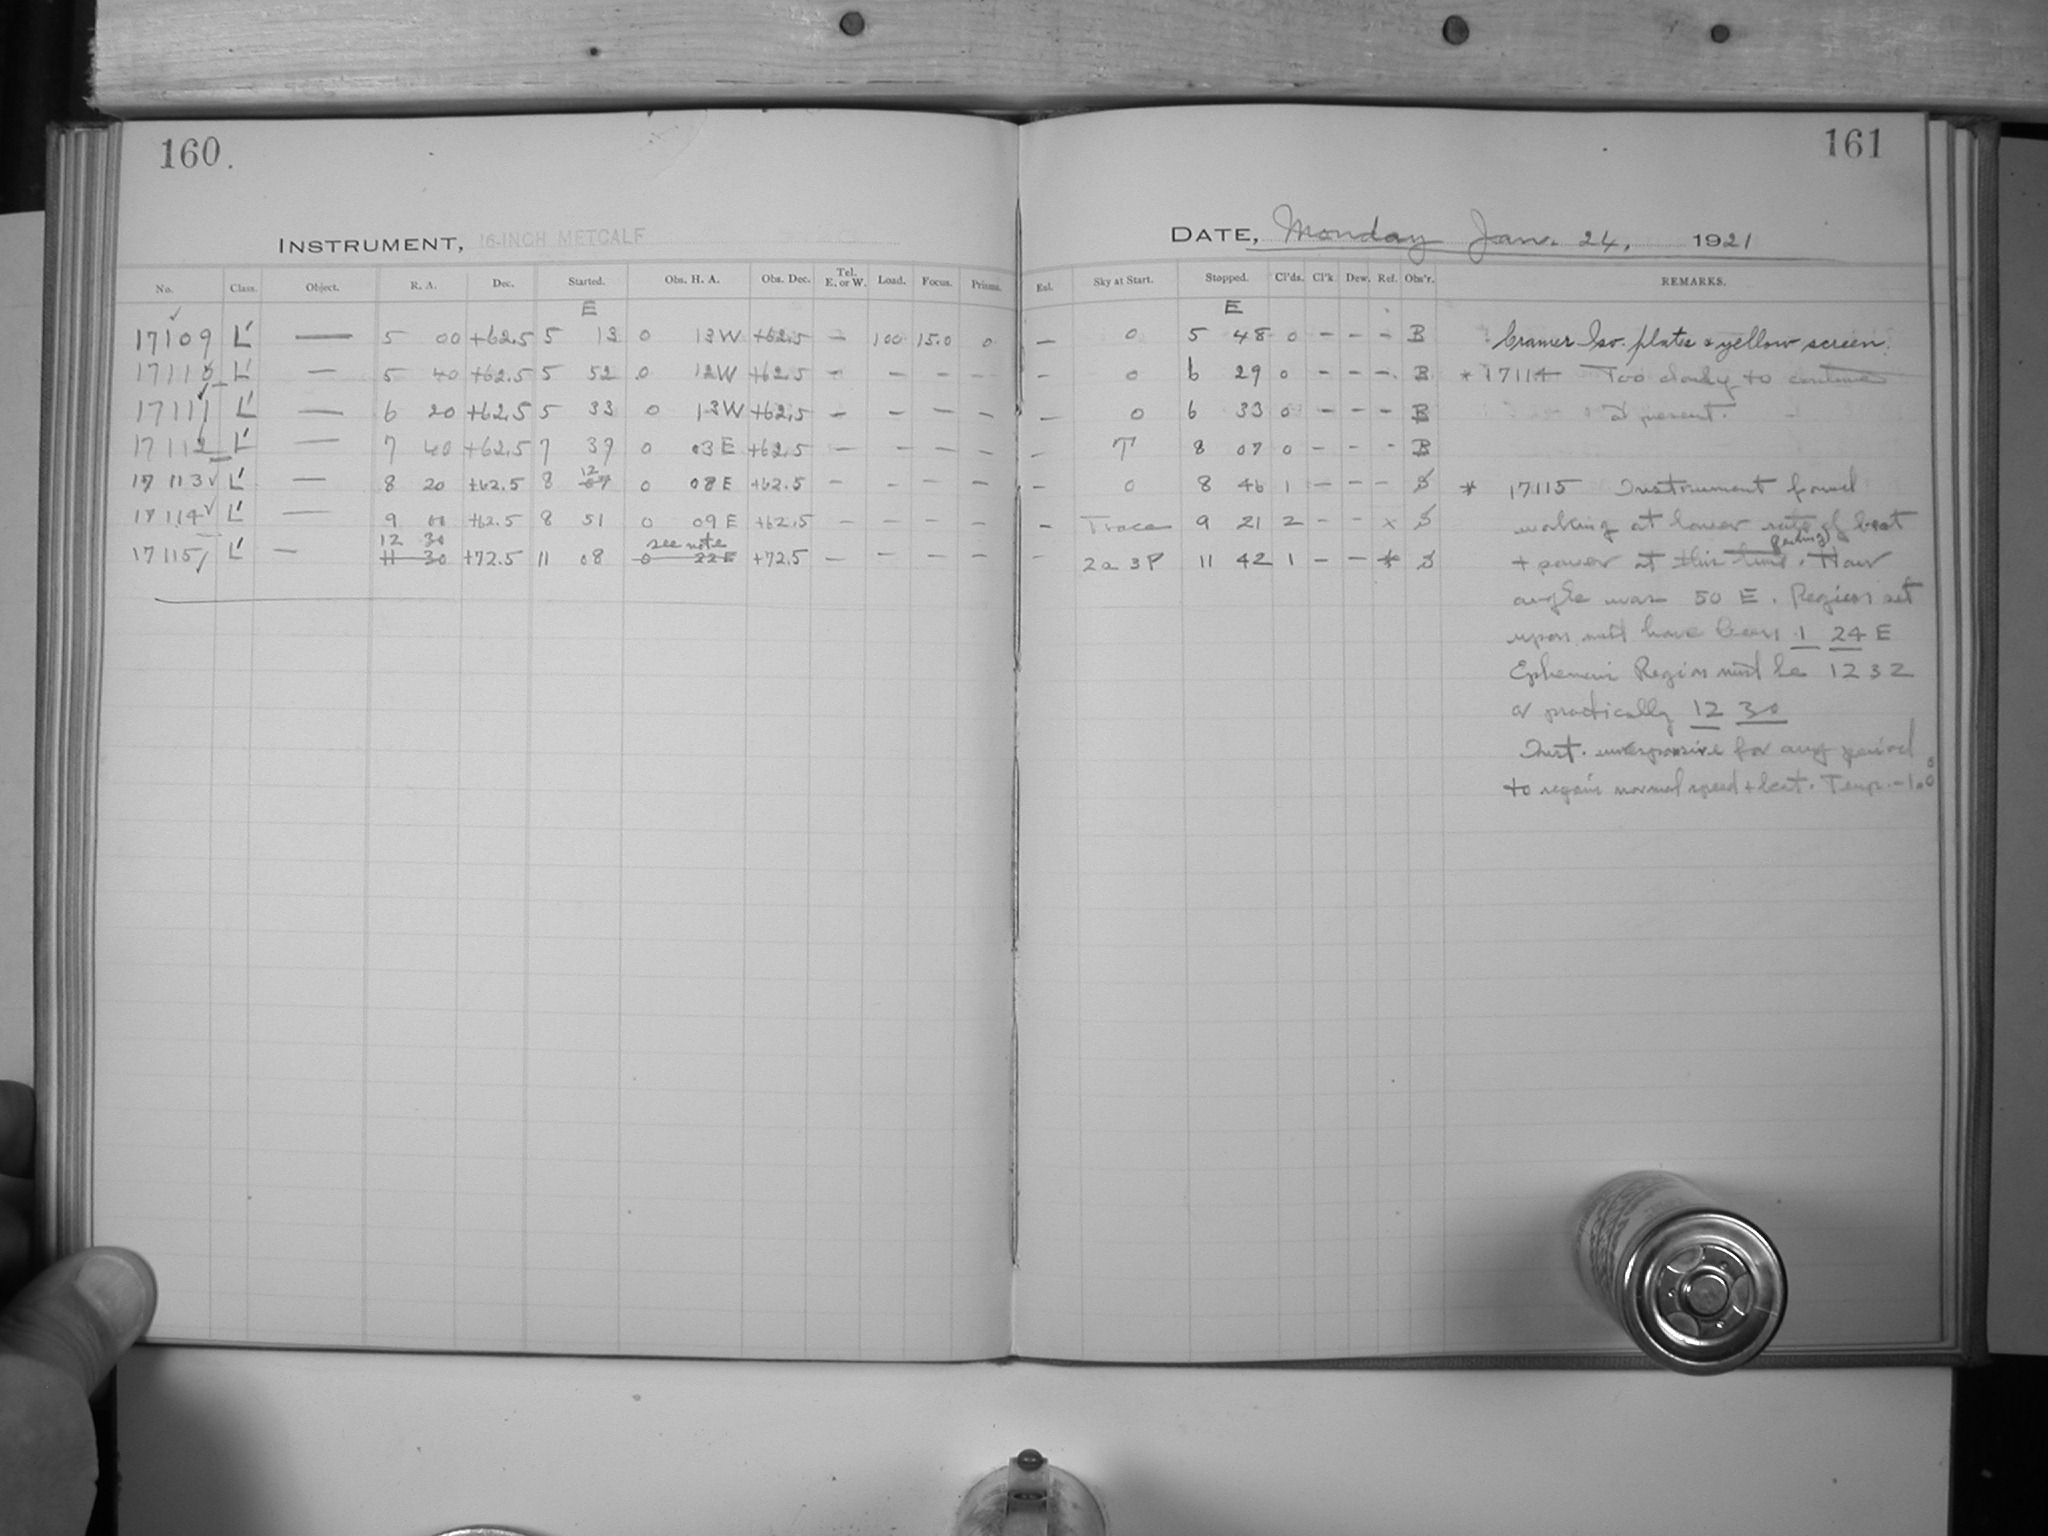 160.
INSTRUMENT, 16-INCH METCALF
No. Class. Object. R. A. Dec. Started. Obs. H. A. Obs. Dec. Tel. E. or W. Load. Focus. Prisms.
E
17109 L' — 5 00 +62.5 5 13 0 13 W +62.5 — 100 15.0 0
17110 L' — 5 40 +62.5 5 52 0 12 W +62.5 — — — — —
17111 L' — 6 20 +62.5 5 33 0 13 W +62.5 — — — — —
17112 L' — 7 40 +62.5 7 37 0 03 E +62.5 — — — — —
12
17113 L' — 8 20 +62.5 8 07 0 08 E +62.5 — — — — —
17114 L' — 9 00 +62.5 8 51 0 09 E +62.5 — — — — —
12 30 see note
17115 L' — 11 30 +72.5 11 08 0 22 E +72.5 — — — — —
161
DATE, Monday Jan. 24, 1921
Eul. Sky at Start. Stopped. Cl'ds. Cl'k Dew. Ref. Obs'r. REMARKS.
E
— 0 5 48 0 — — — B Cramer Iso. plates & yellow screen.
— 0 6 29 0 — — — B * 17114 Too cloudy to continue
— 0 6 33 0 — — — B at present.
— T 8 07 0 — — — B
— 0 8 46 1 — — — S * 17115 Instrument found
— Trace 9 21 2 — — x S working at lower rate of beat
— 2a 3P 11 42 1 — — * S + power at this time. Hour
angle was 50 E. Region set
upon must have been 1 24 E
Ephemeris Region must be 12 32
or practically 12 30
Inst. unresponsive for any period
to regain normal speed + beat. Temp. -1.0°